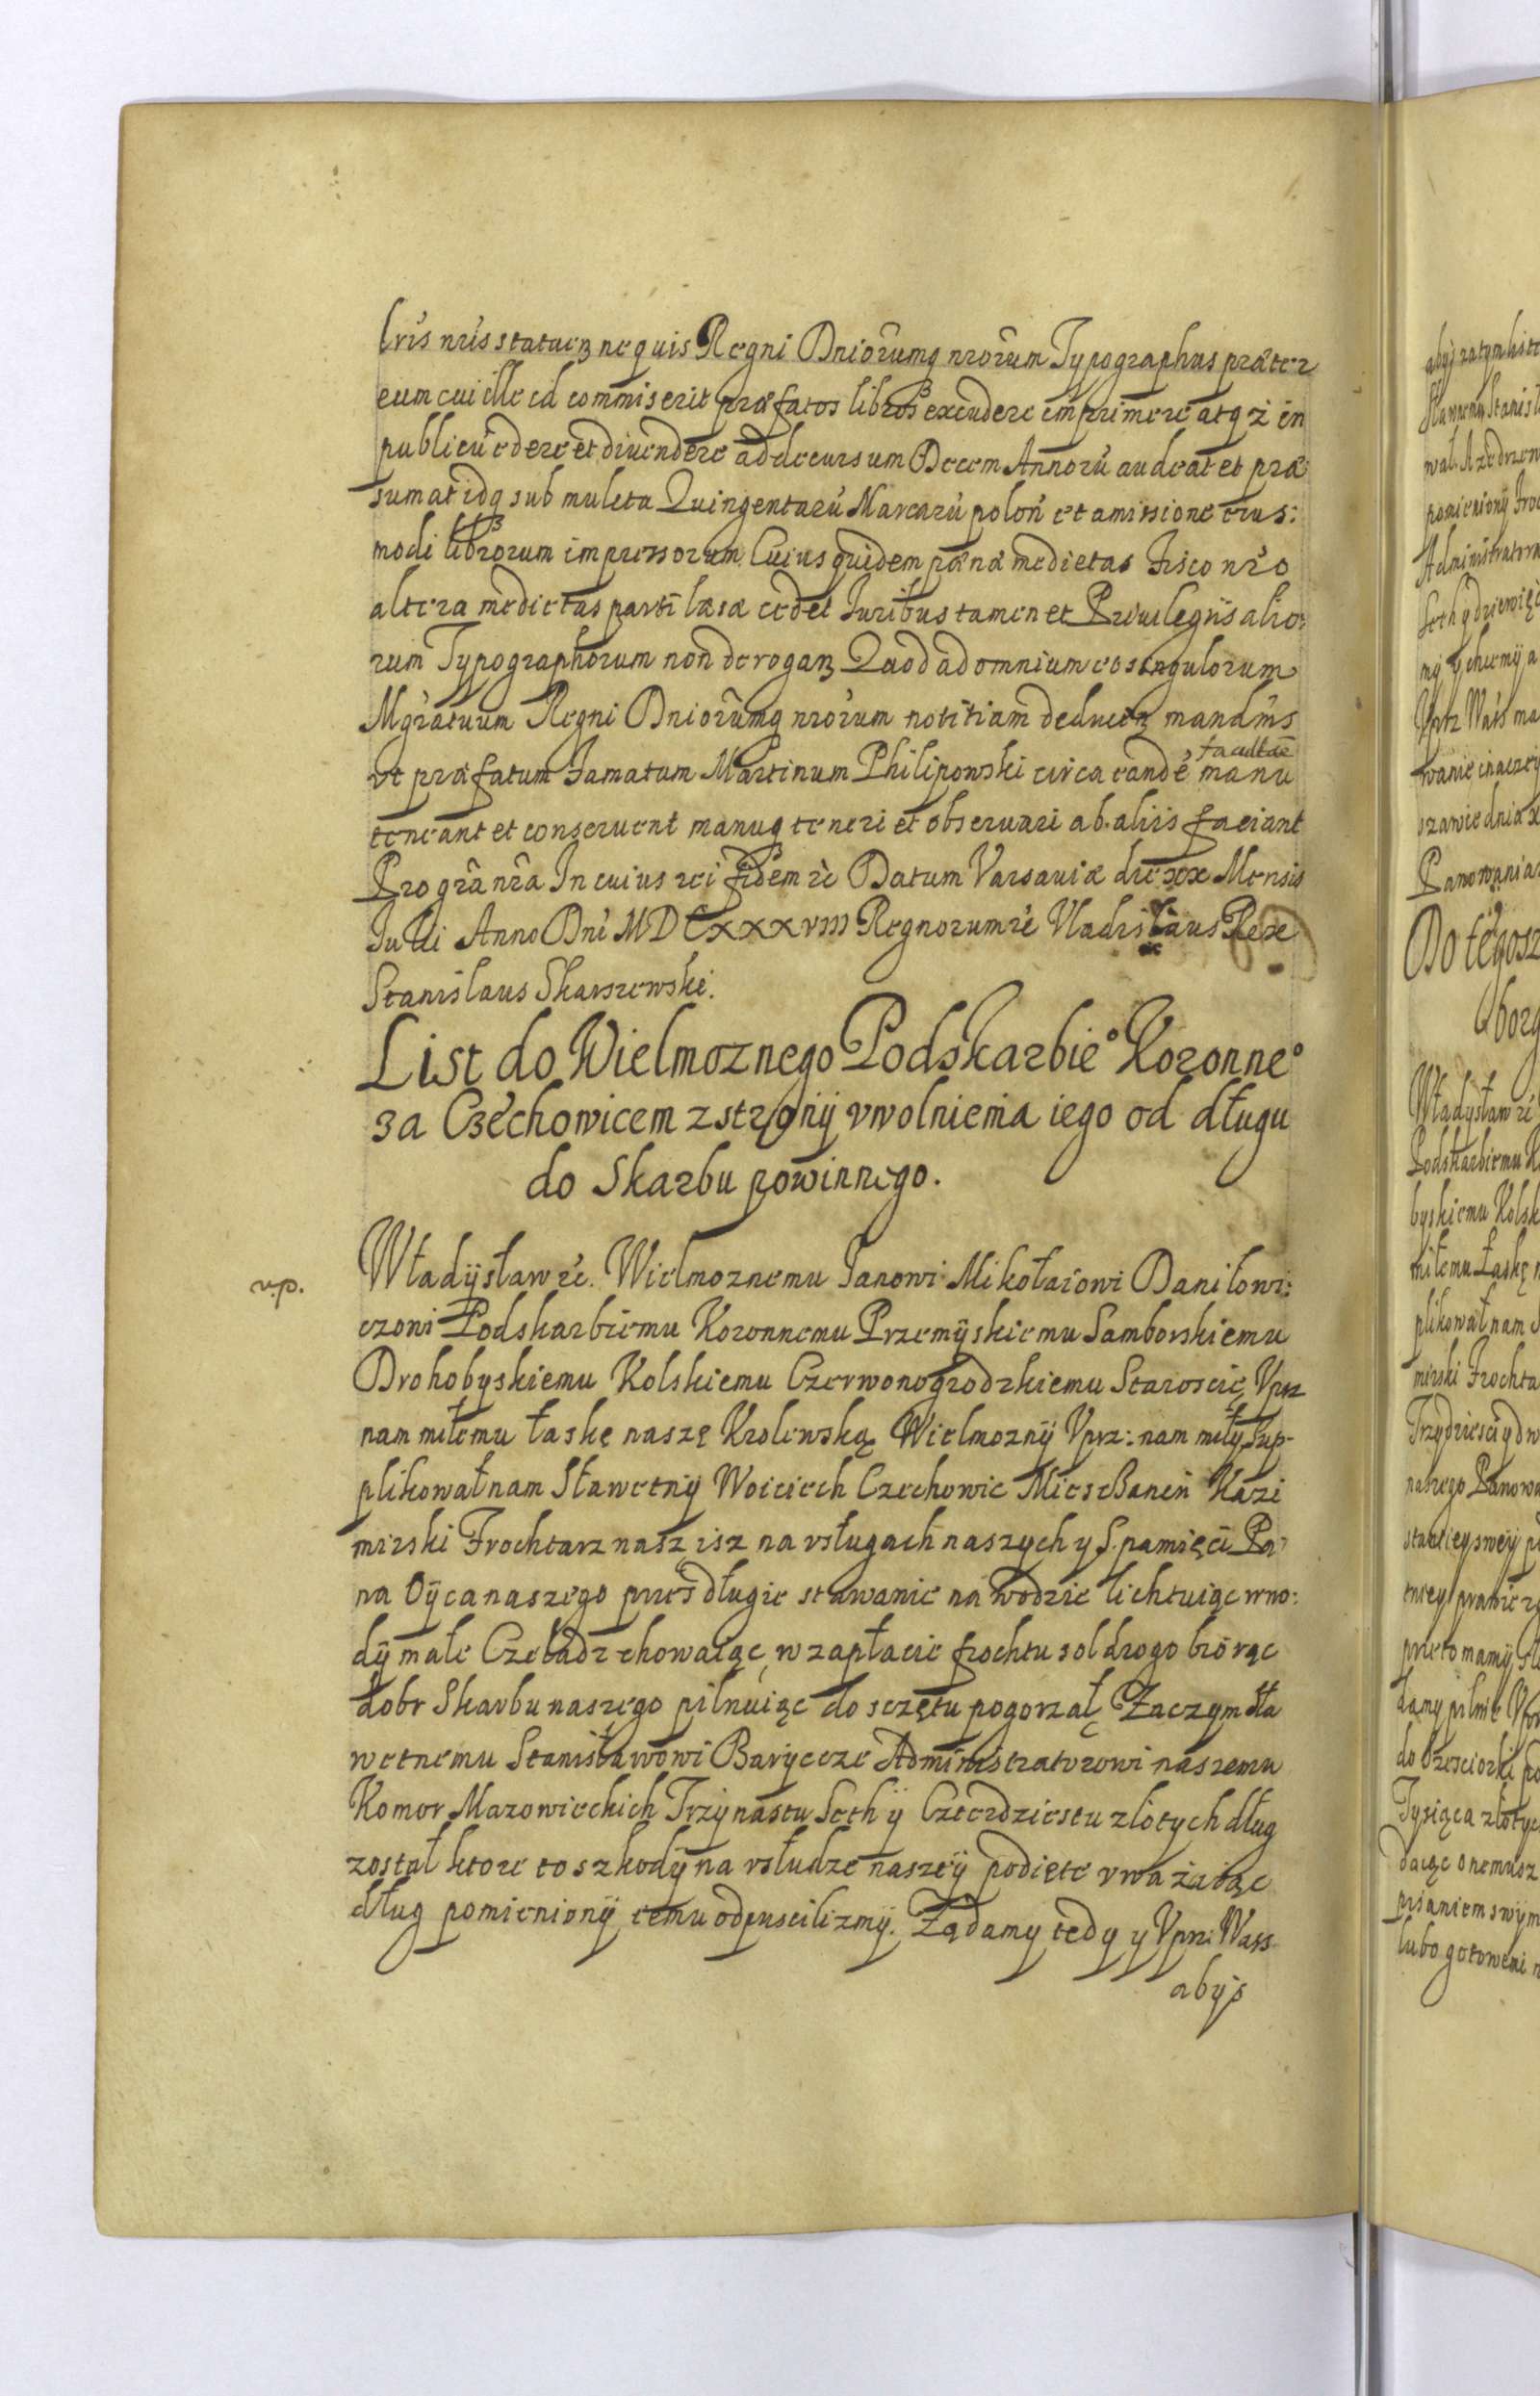 Lrīs nrīs statuen ne quis Regni Dniorumq nrorum Typographus præter
eum cui ille id commiserit præfatos libros excudere imprimere atq in
publicū edere et diuendere ad decursum Decem Annorū audeat et præ
sumat idq sub mulcta Quingentarū Marcarū polon et amissione eius:
modi librorum impressorum Cuius quidem pœnæ medietas Fisco nro
altera medietas parti læsæ cedet Juribus tamen et Priuilegiis alio:
rum Typographorum non derogan Quod ad omnium et singulorum
Mgratuum Regni Dniorumq nrorum notitiam deducen mandms
vt præfatum Famatum Martinum Philipowski circa eandē facultāē manu
teneant et conseruent manuq teneri et obseruari ab aliis faciant
Pro grā nrā In cuius rei fidem rc Datum Varsauiæ die xx Mensis
Julii Anno Dni MDCxxxviii Regnorum rc Vladislaus Rex
Stanislaus Skarszewski.
List do Wielmoznego Podskarbie° Koronne°
za Czechowicem z strony vwolnienia iego od długu
do Skarbu powinnego.
v.p.
Władÿsław rc. Wielmoznemu Janowi Mikołaiowi Daniłowi:
czowi Podskarbiemu Koronnemu Przemÿskiemu Samborskiemu
Drohobyskiemu Kolskiemu Czerwonogrodzkiemu Staroscie, Vprz
nam miłemu łaskę naszę Krolewską Wielmoznÿ Vprz: nam miłÿ Sup-
plikował nam Sławetnÿ Woiciech Czechowic Miesczanin Kazi
mirski Frochtarz nasz isz na vsługach naszych y S. pamięci Pa:
na Oÿca naszego przes długie stawanie na wodzie lichtuiąc wno:
dÿ małe Czeladz chowaiąc, w zapłacie frochtu sol drogo biorąc
dobr Skarbu naszego pilnuiąc do sczętu pogorzał, Zaczym Sła
wetnemu Stanisławowi Barÿczce Administratorowi naszemu
Komor Mazowieckich Trzÿnastu Seth ÿ Czterdziestu złotych dług
został ktore to szkodÿ na vsłudze naszeÿ podięte vważaiąc
dług pomienionÿ temu odpuscilizmÿ. Ządamy tedy y Vprz: Wass
abÿs